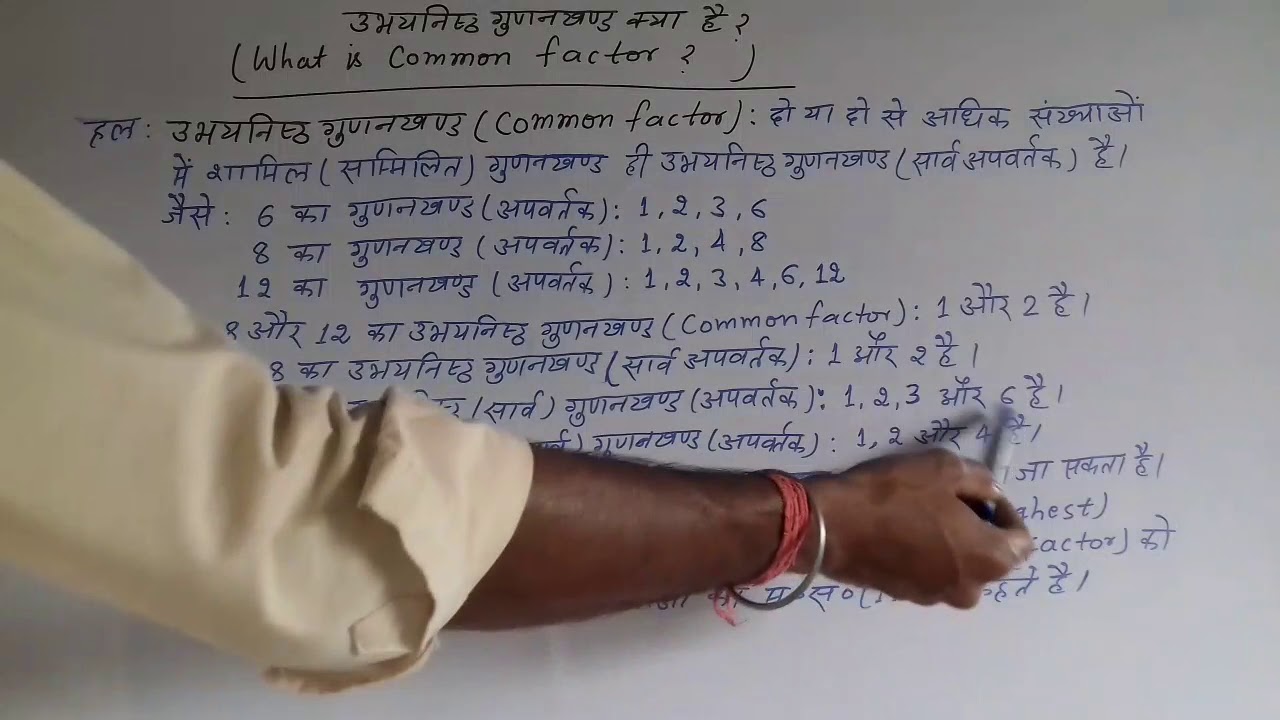 उभयनिष्ठ गुणनखण्ड क्या है?
(What is Common factor ? )
हल: उभयनिष्ठ गुणनखण्ड (Common factor): दो या दो से अधिक संख्याओं
में शामिल (सम्मिलित) गुणनखण्ड ही उभयनिष्ठ गुणनखण्ड (सार्व अपवर्तक) है।
जैसे: 6 का गुणनखण्ड (अपवर्तक): 1, 2, 3, 6
8 का गुणनखण्ड (अपवर्तक): 1, 2, 4, 8
12 का गुणनखण्ड (अपवर्तक): 1, 2, 3, 4, 6, 12
और 12 का उभयनिष्ठ गुणनखण्ड (Common factor): 1 और 2 है।
8 का उभयनिष्ठ गुणनखण्ड (सार्व अपवर्तक): 1 और 2 है।
(सार्व) गुणनखण्ड (अपवर्तक): 1, 2, 3 और 6 है।
गुणनखण्ड (अपवर्तक): 1, 2 और 4 है।
जा सकता है।
को
है।